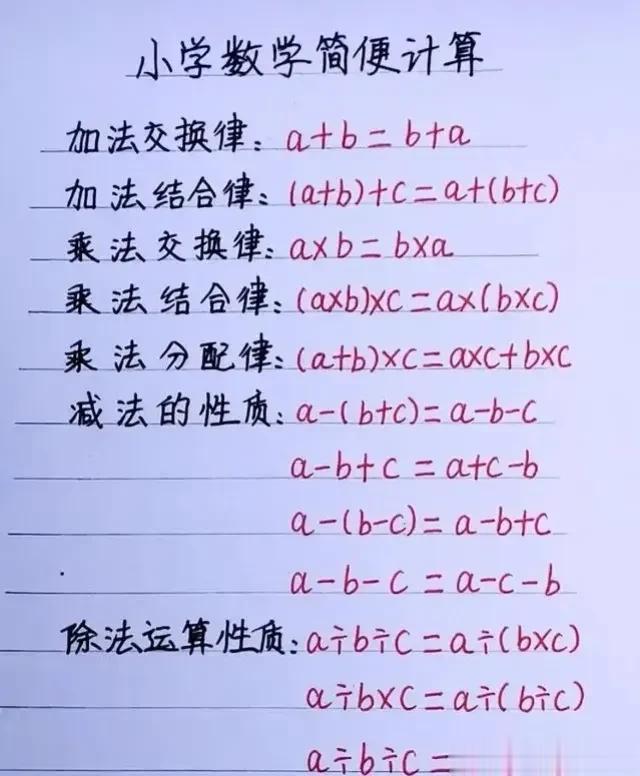 小学数学简便计算
加法交换律：a+b=b+a
加法结合律：(a+b)+c=a+(b+c)
乘法交换律：a×b=b×a
乘法结合律：(a×b)×c=a×(b×c)
乘法分配律：(a+b)×c=a×c+b×c
减法的性质：a-(b+c)=a-b-c
a-b+c=a+c-b
a-(b-c)=a-b+c
a-b-c=a-c-b
除法运算性质：a÷b÷c=a÷(b×c)
a÷b×c=a÷(b÷c)
a÷b÷c=